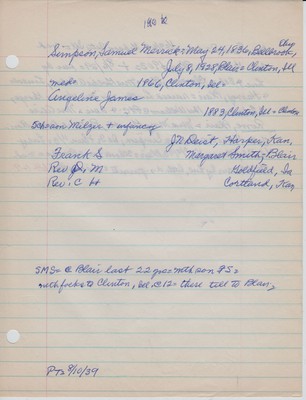 Simpson, Samuel Merrick = May 24, 1836, Bellbrook, Ohio
July 8, 1928, Blair = Clinton, Ill
md = 1866, Clinton, Ill =
Angeline James
1883, Clinton, Ill = Clinton
5ch = son Milzer & infancy
J N Deist, Harper, Kan,
Frank S Margaret Smith = Blair
Rev J. M Goldfield, Ia
Rev. C H Cortland, Kan
SMS = @ Blair last 22 yrs = mth son FS =
with folks to Clinton, Ill @ 12 = there till to Blair,
PT = 9/10/39